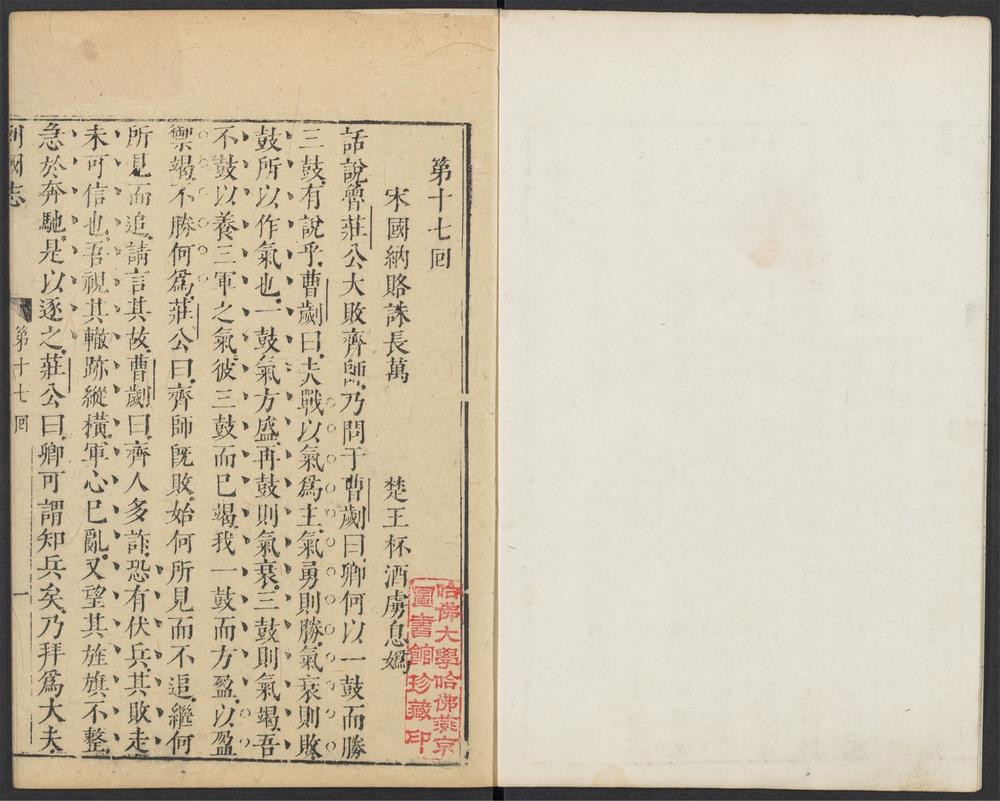 第十七回
宋國納賂誅長萬　楚王杯酒虜息媯
話說魯莊公大敗齊師乃問于曹劌曰卿何以一鼓而勝
三鼓有說乎曹劌曰夫戰以氣爲主氣勇則勝氣衰則敗
鼓所以作氣也一鼓氣方盛再鼓則氣衰三鼓則氣竭吾
不鼓以養三軍之氣彼三鼓而已竭我一鼓而方盈以盈
禦竭不勝何爲莊公曰齊師旣敗始何所見而不追繼何
所見而追請言其故曹劌曰齊人多詐恐有伏兵其敗走
未可信也吾視其轍跡縱橫軍心已亂又望其旌旗不整
急於奔馳是以逐之莊公曰卿可謂知兵矣乃拜爲大夫
列國志
第十七回
一
哈佛大學哈佛燕京
圖書館珍藏印